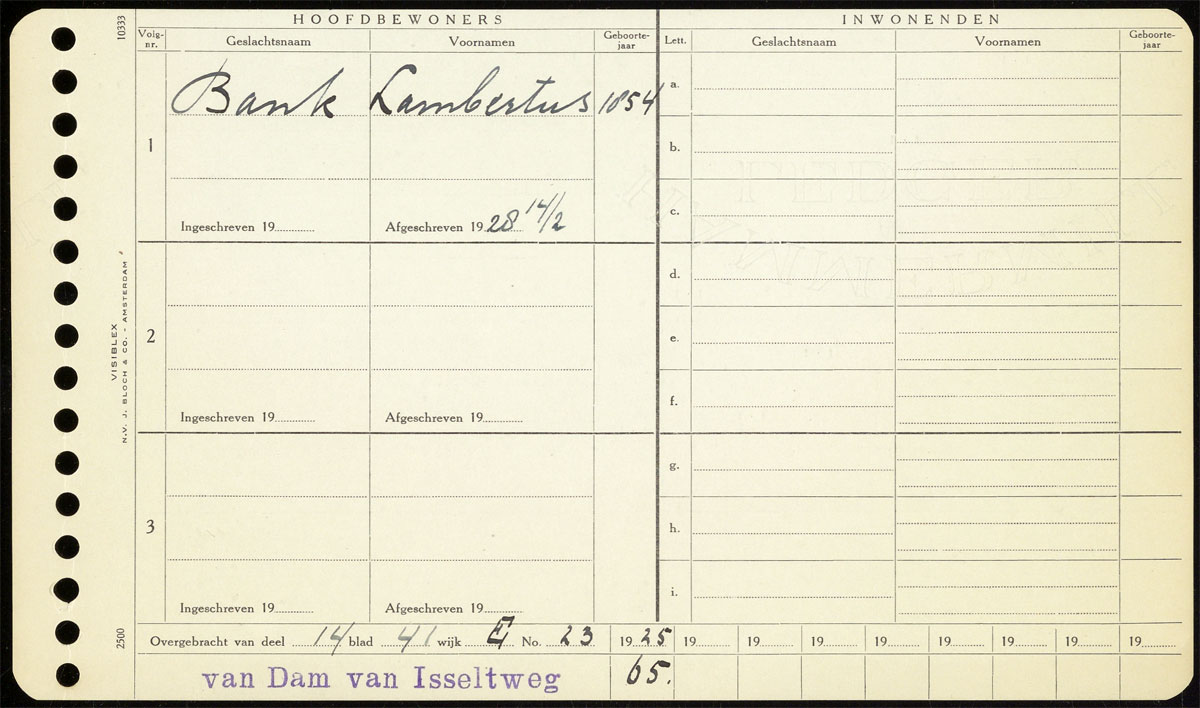 HOOFDBEWONERS INWONENDEN
Volg-nr. Geslachtsnaam Voornamen Geboorte-jaar Lett. Geslachtsnaam Voornamen Geboorte-jaar
1 Bank Lambertus 1854
Ingeschreven 19 Afgeschreven 1928 14/2
2
Ingeschreven 19 Afgeschreven 19
3
Ingeschreven 19 Afgeschreven 19
a.
b.
c.
d.
e.
f.
g.
h.
i.
Overgebracht van deel 14 blad 41 wijk E No. 23 1925 19 19 19 19 19 19 19 19
van Dam van Isseltweg 65.
10333
VISIBLEX
N.V. J. BLOCH & CO. - AMSTERDAM
2500